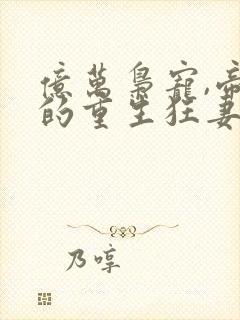 億萬梟寵,帝
的重生狂妻
乃啍